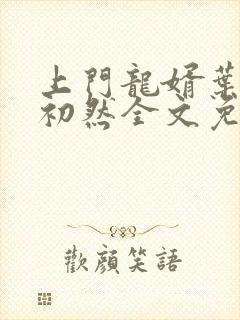 上門龍婿葉
初然全文免
歡顏笑語